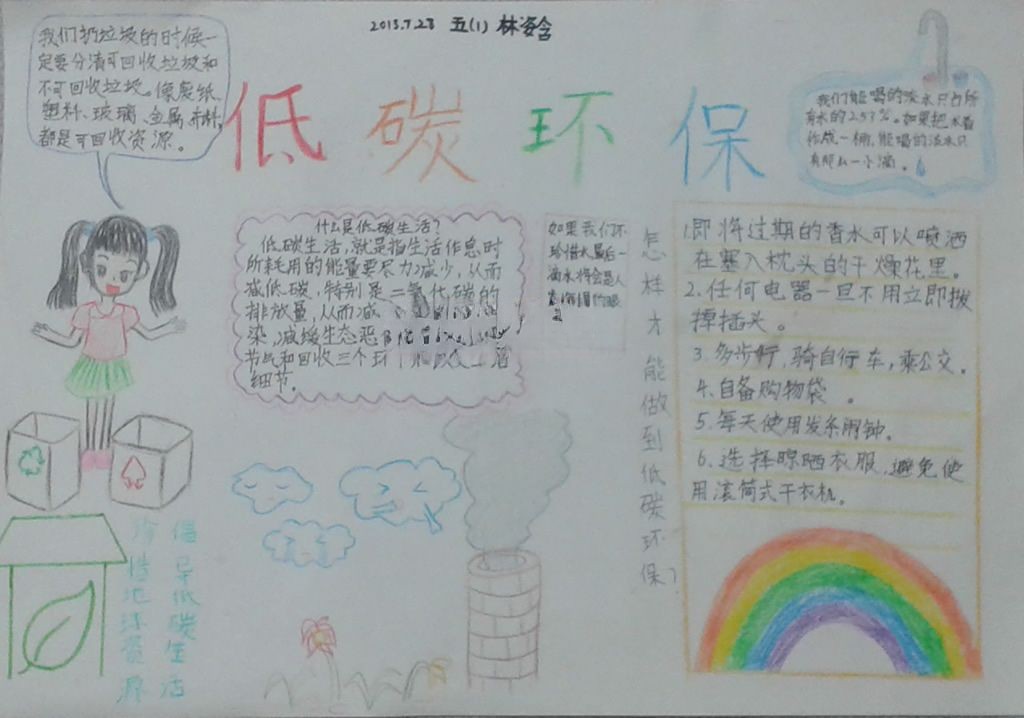 2013.7.23 五(1) 林姿含
低碳环保
我们扔垃圾的时候一
定要分清可回收垃圾和
不可回收垃圾。像废纸、
塑料、玻璃、金属、布料,
都是可回收资源。
我们能喝的淡水只占所
有水的2.53%。如果把水看
作成一桶,能喝的淡水只
有那么一小滴。
什么是低碳生活?
低碳生活,就是指生活作息时
所耗用的能量要尽力减少,从而
减低碳,特别是二氧化碳的
排放量,从而减
染,减缓生态恶
节气和回收三个环
细节。
如果我们不
珍惜水最后一
滴水将会是人
怎样才能做到低碳环保?
1.即将过期的香水可以喷洒
在塞入枕头的干燥花里。
2.任何电器一旦不用立即拨
掉插头。
3.多步行,骑自行车,乘公交。
4.自备购物袋。
5.每天使用发条闹钟。
6.选择晾晒衣服,避免使
用滚筒式干衣机。
倡导低碳生活
珍惜地球资源